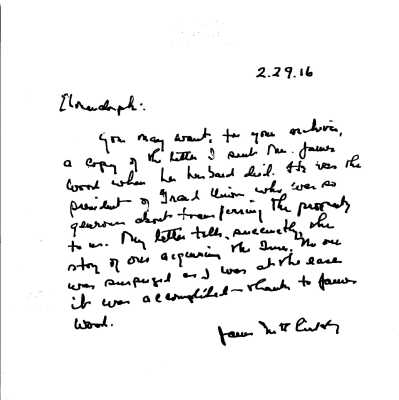 2.29.16
Elmendorph:
You may want, for your archives,
a copy of the letter I sent Mrs. James
Wood when her husband died. He was the
president of Grand Union who was so
generous about transferring the property
to us. My letter tells, succinctly, the
story of our acquiring the Inn. No one
was surprised as I was at the ease
it was accomplished – thanks to James
Wood.
James